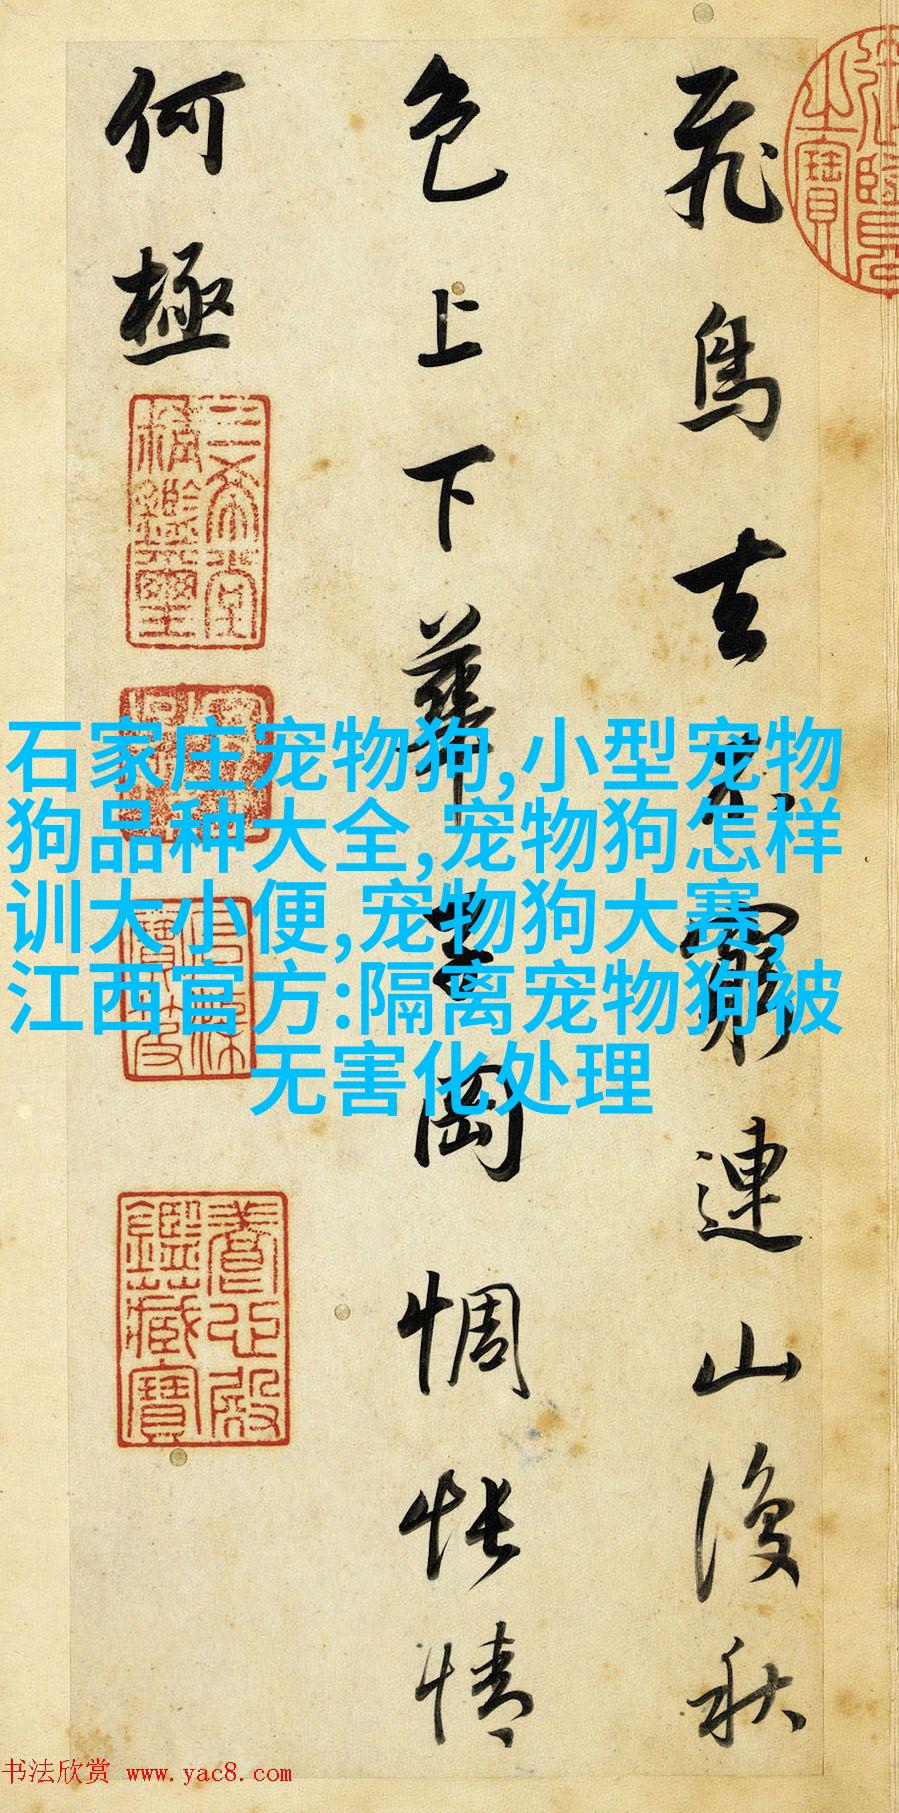 飛鳥去不窮連山復秋
色上下華子岡惆悵情
何極
三希堂精鑑璽
養心殿鑑藏寶
石家庄宠物狗,小型宠物
狗品种大全,宠物狗怎样
训大小便,宠物狗大赛,
江西官方:隔离宠物狗被
无害化处理
书法欣赏 www.yac8.com